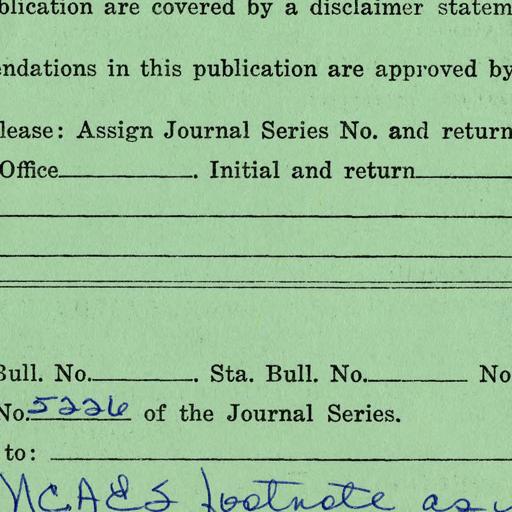 blication are covered by a disclaimer statem
endations in this publication are approved by
lease: Assign Journal Series No. and return
Office_____. Initial and return_____
Bull. No._____. Sta. Bull. No._____ No
No. 5226 of the Journal Series.
to: _____
NCAES footnote as